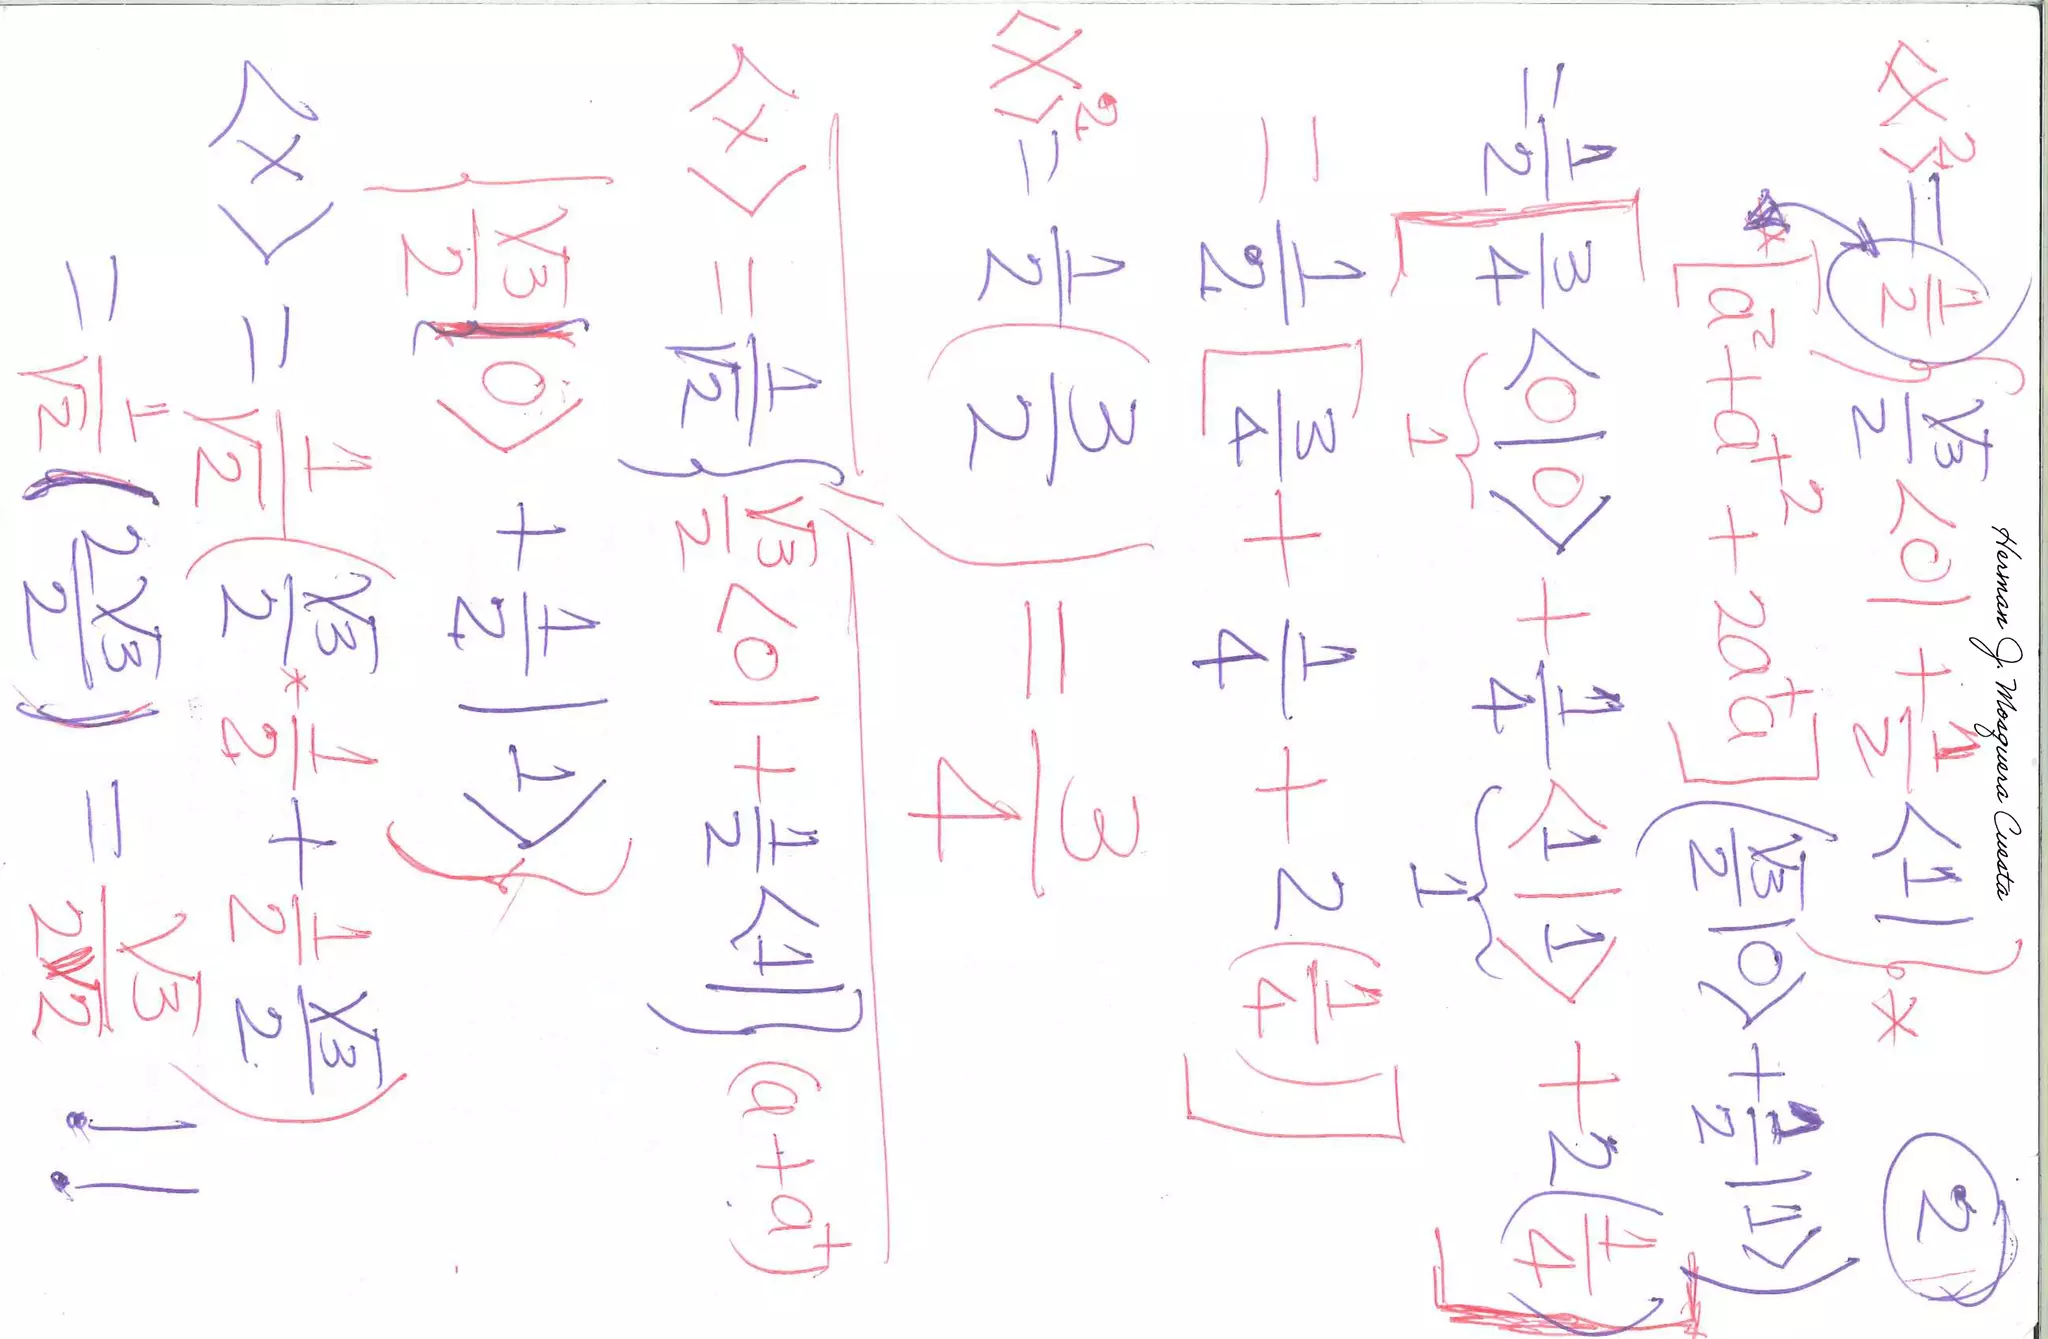 Herman J. Mosquera Cuesta
2
<x²> = 1/2 { √3/2 <0| + 1/2 <1| } *
* [a² + a†² + 2a†a] (√3/2 |0> + 1/2 |1>)
= 1/2 [3/4 <0|0> + 1/4 <1|1> + 2(1/4)]
1 1
= 1/2 [3/4 + 1/4 + 2(1/4)]
<x>² = 1/2 (3/2) = 3/4
<x> = 1/√2 { √3/2 <0| + 1/2 <1| } (a + a†)
{ √3/2 |0> + 1/2 |1> }
<x> = 1/√2 (√3/2 * 1/2 + 1/2 √3/2)
= 1/√2 (2√3/2) = √3/2√2 !!